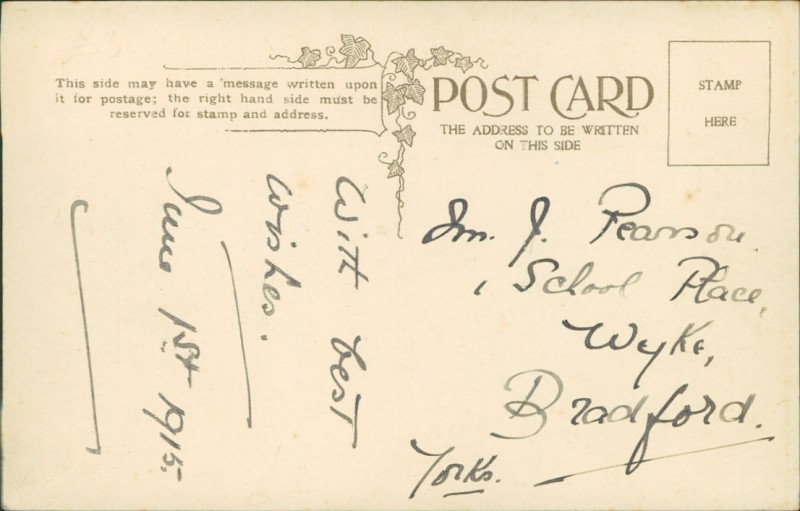 This side may have a message written upon
it for postage; the right hand side must be
reserved for stamp and address.
POST CARD
THE ADDRESS TO BE WRITTEN
ON THIS SIDE
STAMP
HERE
With best
wishes.
June 1st 1915.
J. Pearson.
1 School Place,
Wyke,
Bradford.
Yorks.